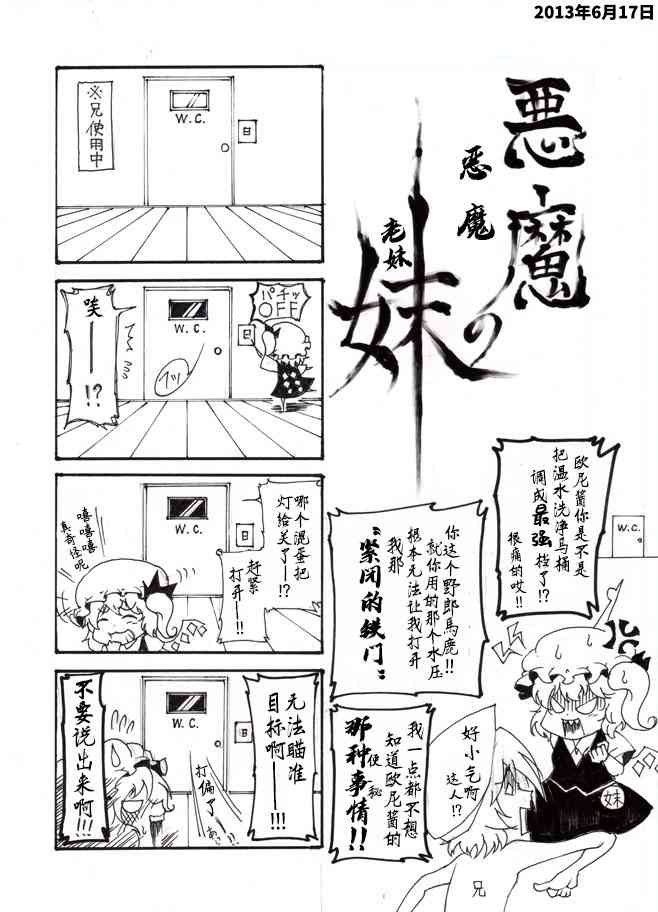 2013年6月17日
悪魔の妹
恶魔
老妹
※兄使用中
W.C.
日
パチッ
OFF
日
W.C.
フッ
唉——!?
哪个混蛋把
灯给关了——!?
赶紧
打开——!!
W.C.
日
嘻嘻嘻
真奇怪呢
无法瞄准
目标啊——!!!
W.C.
日
打偏了
不要说出
来啊!!!
欧尼酱你是不是
把温水洗净马桶
调成最强档了!?
很痛的哎!!
W.C.
你这个野郎馬鹿!!
就你用的那个水压
根本无法让我打开
我那
“紧闭的铁门”
我一点都不想
知道欧尼酱的
那种使秘事情!!
好小气啊
这人!?
妹
兄